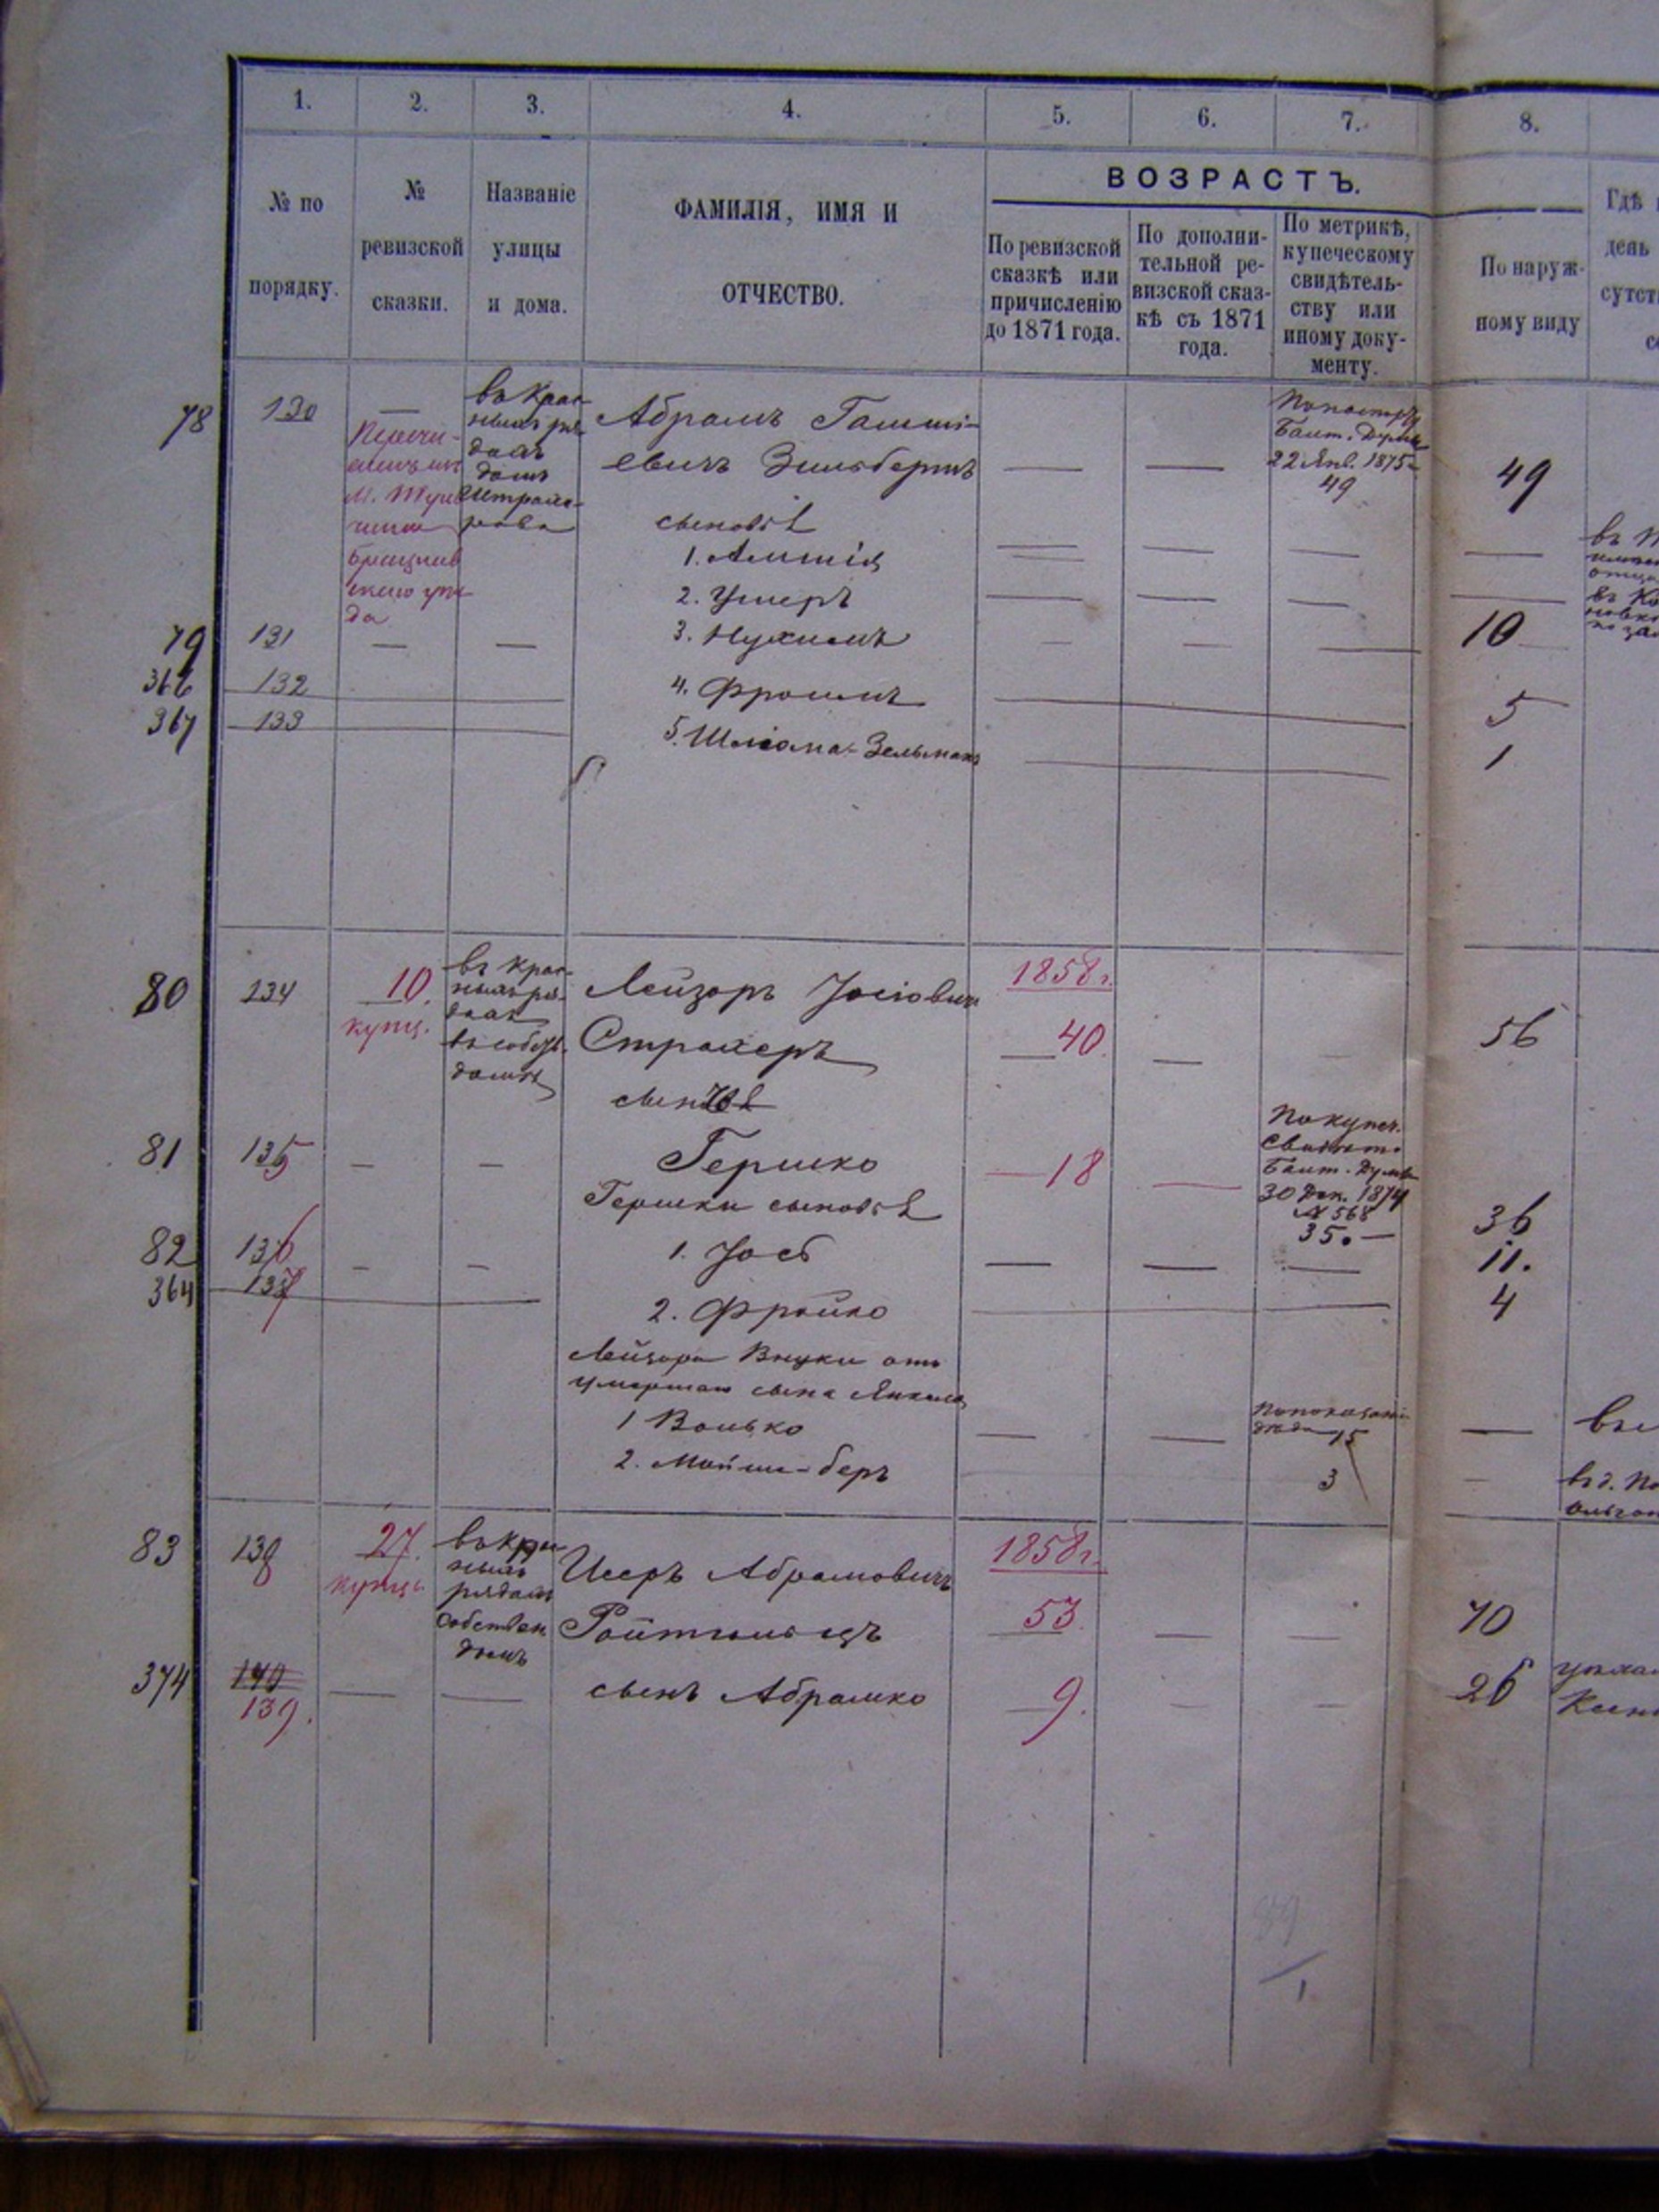 1. 2. 3. 4. 5. 6. 7. 8.
№ по порядку.
№ ревизской сказки.
Названіе улицы и дома.
ФАМИЛІЯ, ИМЯ И ОТЧЕСТВО.
ВОЗРАСТЪ.
По ревизской сказкѣ или причисленію до 1871 года.
По дополнительной ревизской сказкѣ съ 1871 года.
По метрикѣ, купеческому свидѣтельству или иному документу.
По наружному виду
Гдѣ
день
78 130 —
въ Крас-
ныхъ ря-
дахъ
домъ
Абрамъ
Зильберъ
22 Янв. 1875
49
49
сыновья
1.
2. Ушеръ
79 131 — — 3. Нухимъ 10
366 132 4. Фроимъ 5
367 133 5. Шліома-Зельманъ 1
80 134 10. купц.
въ Крас-
ныхъ ря-
дахъ
въ собств.
домѣ
Лейзеръ Іосіовичъ
Страхеръ
1858 г.
40.
56
сынъ
81 135 — — Гершко 18
По купеч.
Свидѣт.
Балт. Думы
30 Дек. 1874
№ 568
35. —
36
Гершки сыновья
82 136 — — 1. Іосъ 11.
364 137 2. Фройко 4
Лейзора Внуки отъ
умершаго сына Янкеля
1 Волько
По показанію
дѣда 15
2. Мойше-беръ 3
83 138 27. купцы
въ Крас-
ныхъ
рядахъ
собствен.
домъ
Исеръ Абрамовичъ
Ройтгольцъ
1858 г.
53.
70
374 140
139.
сынъ Абрамко 9. 26